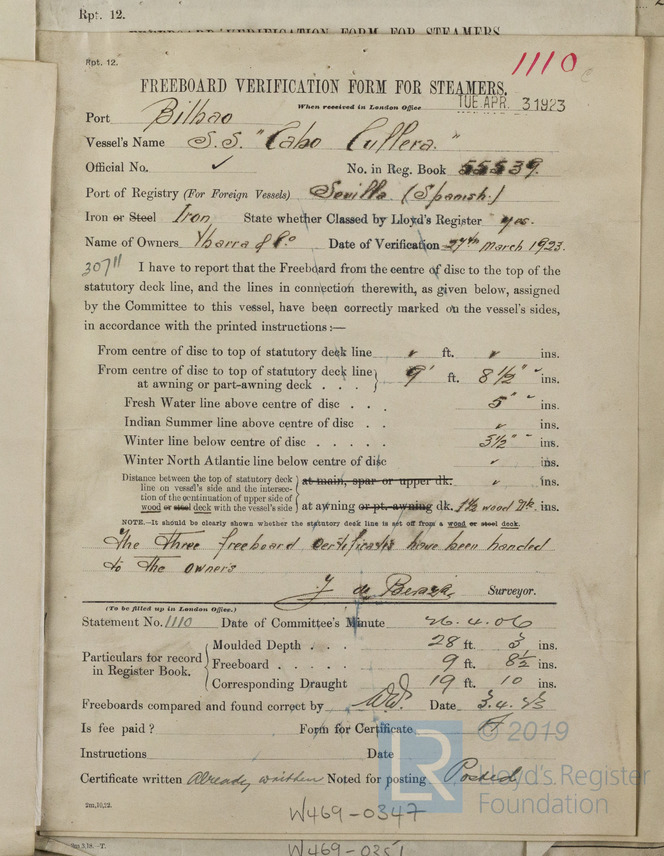 Rpt. 12.
FREEBOARD VERIFICATION FORM FOR STEAMERS
Rpt. 12.
1110
FREEBOARD VERIFICATION FORM FOR STEAMERS.
When received in London Office TUE. APR. 3 1923
Port Bilbao
Vessel's Name S.S. "Cabo Cullera."
Official No. ✓ No. in Reg. Book 55539.
Port of Registry (For Foreign Vessels) Sevilla (Spanish.)
Iron or Steel Iron State whether Classed by Lloyd's Register yes.
Name of Owners Ybarra & Co. Date of Verification 27th March 1923.
307"
I have to report that the Freeboard from the centre of disc to the top of the
statutory deck line, and the lines in connection therewith, as given below, assigned
by the Committee to this vessel, have been correctly marked on the vessel's sides,
in accordance with the printed instructions:—
From centre of disc to top of statutory deck line ✓ ft. ✓ ins.
From centre of disc to top of statutory deck line
at awning or part-awning deck . . . 9' ft. 8 1/2" ins.
Fresh Water line above centre of disc . . . 5" ins.
Indian Summer line above centre of disc . . ✓ ins.
Winter line below centre of disc . . . . . 3 1/2" ins.
Winter North Atlantic line below centre of disc ✓ ins.
Distance between the top of statutory deck
line on vessel's side and the intersec-
tion of the continuation of upper side of
wood or steel deck with the vessel's side
at main, spar or upper dk. ✓ ins.
at awning or pt. awning dk. 1 1/2 wood Dk. ins.
NOTE.—It should be clearly shown whether the statutory deck line is set off from a wood or steel deck.
The three freeboard certificates have been handed
to the owners
J. de Beraza, Surveyor.
(To be filled up in London Office.)
Statement No. 1110 Date of Committee's Minute 26.4.06
Particulars for record
in Register Book.
Moulded Depth . . . 28 ft. 3 ins.
Freeboard . . . . . 9 ft. 8 1/2 ins.
Corresponding Draught 19 ft. 10 ins.
Freeboards compared and found correct by Date 3.4.23
Is fee paid? Form for Certificate A
Instructions Date
Certificate written Already written Noted for posting Posted
2m,10,22.
W469-0347
2m 3,18.—T.
W469-0351
LR
© 2019
Lloyd's Register
Foundation